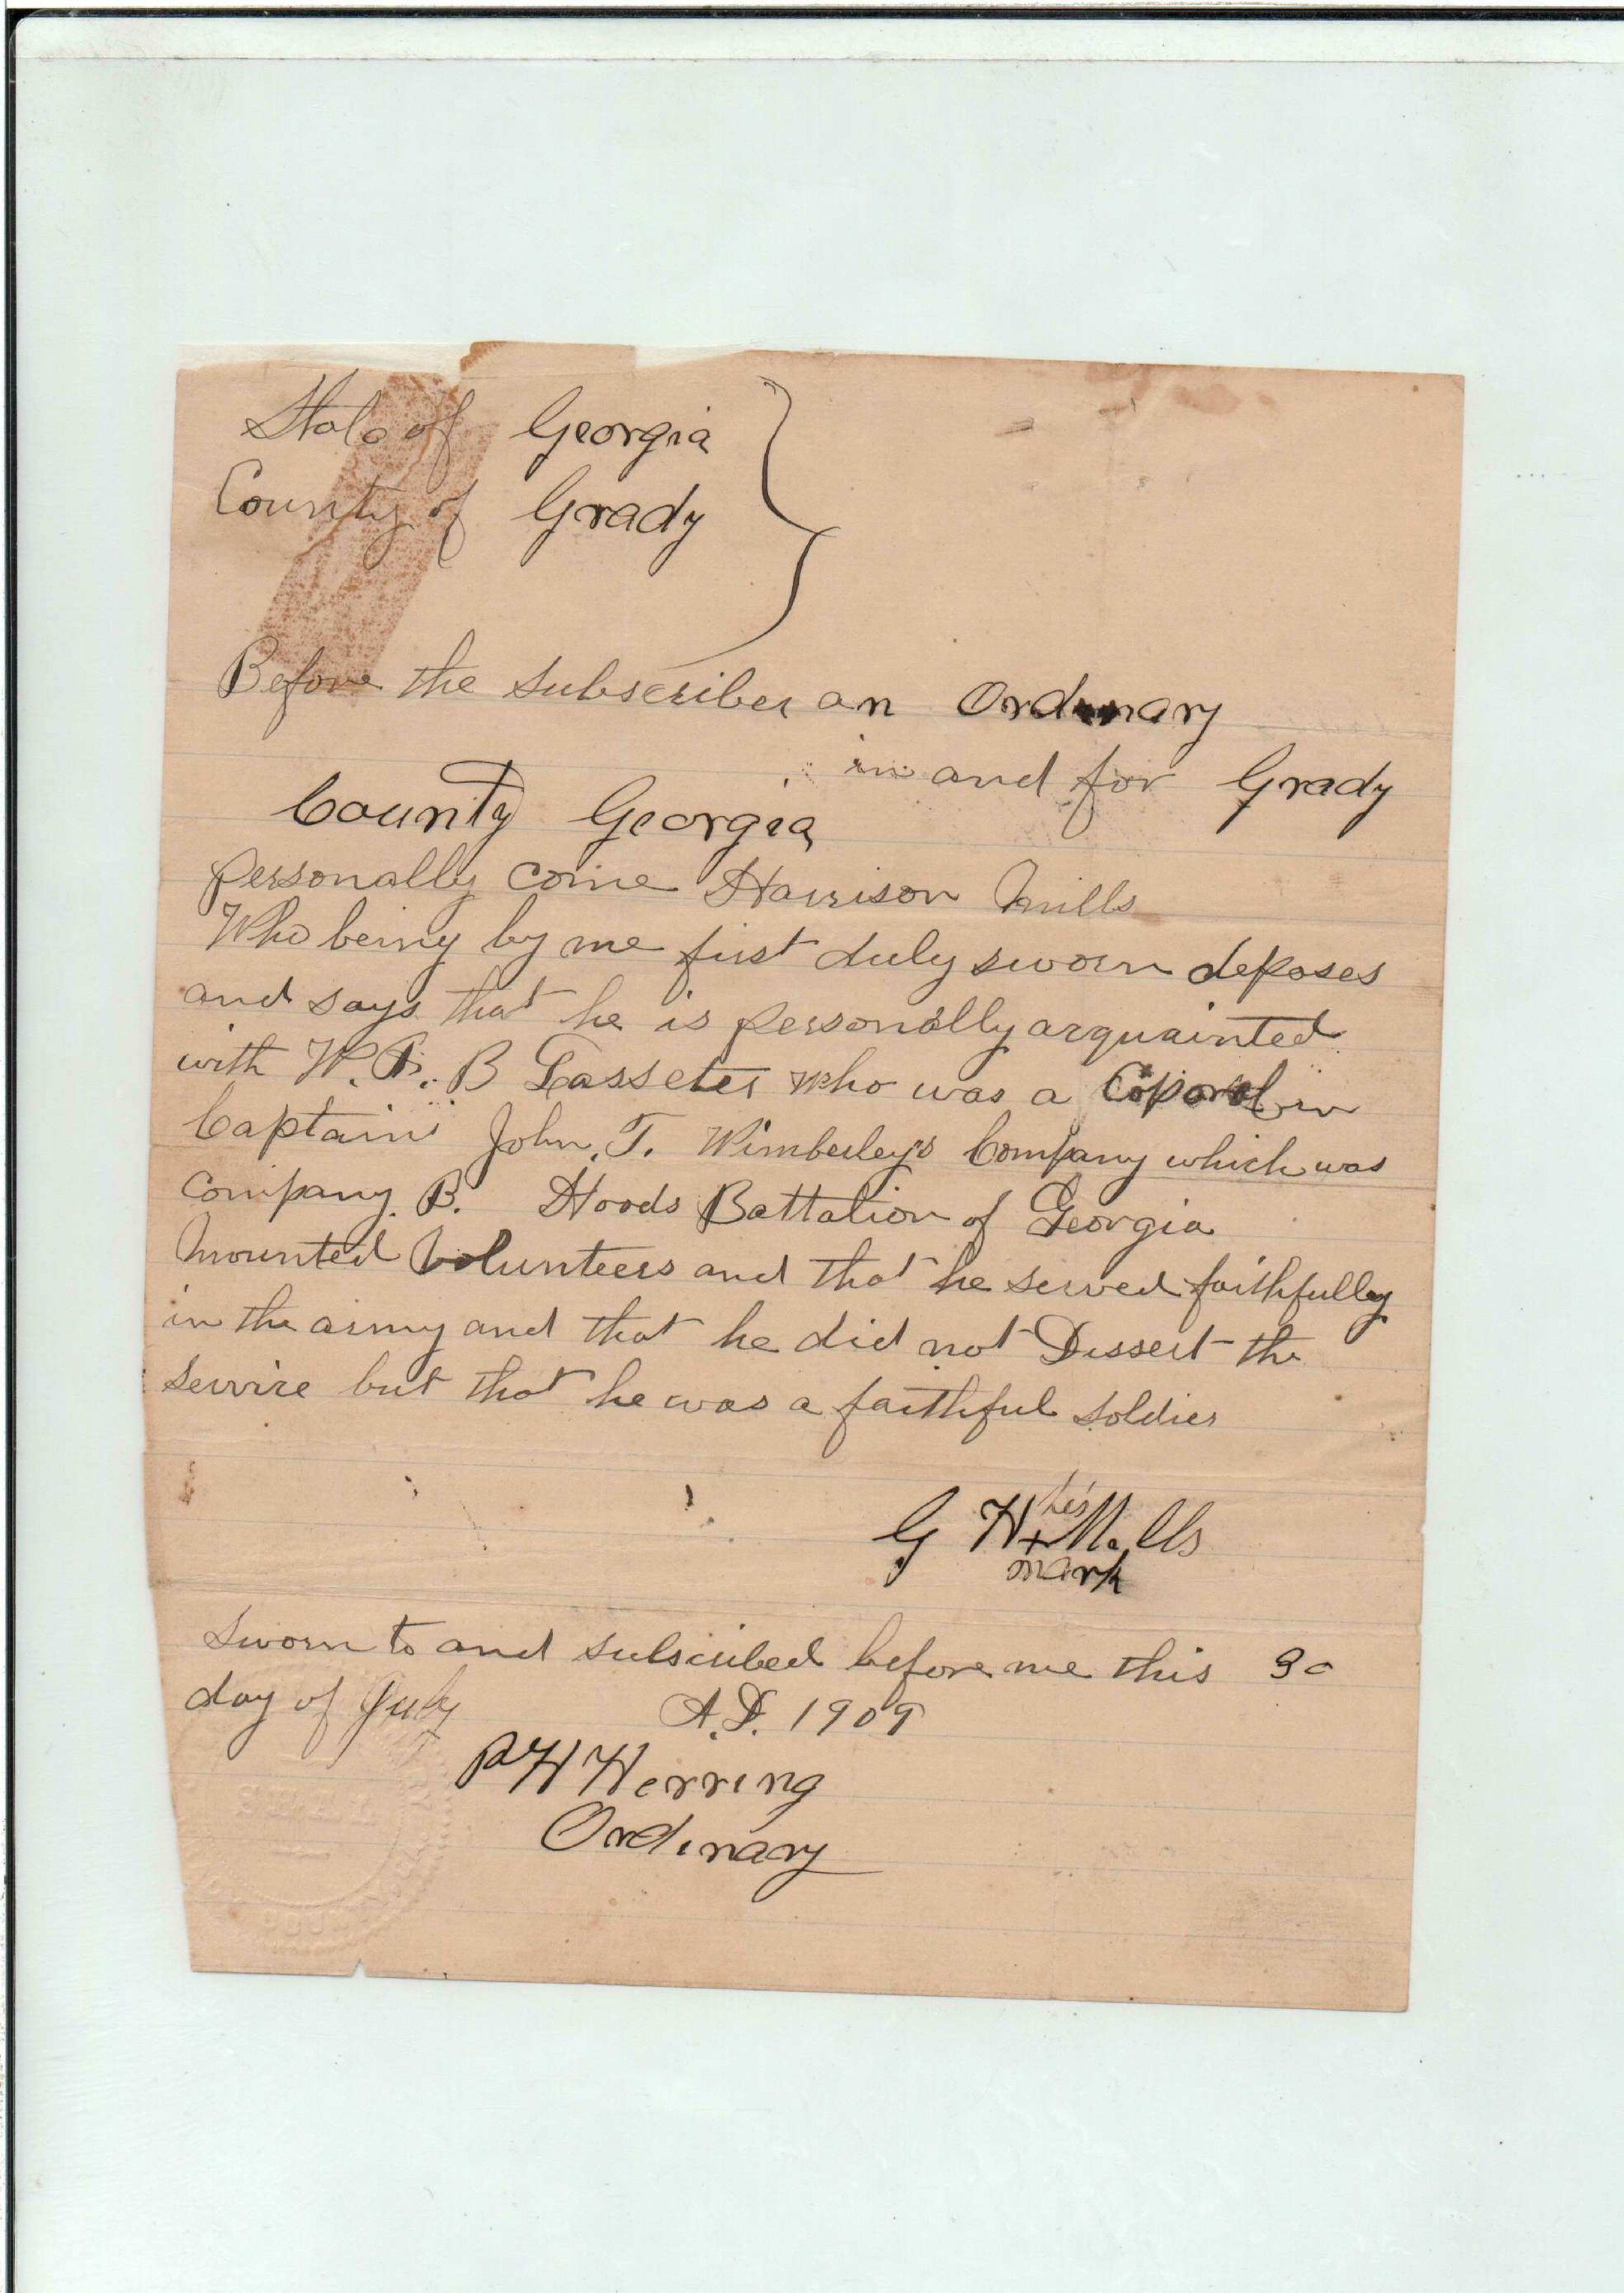 State of Georgia
County of Grady
Before the subscriber an Ordinary
in and for Grady
County Georgia
personally come Harrison Mills
Who being by me first duly sworn deposes
and says that he is personally acquainted
with W. B. B Lasseter who was a Coporal in
Captain John, T. Wimberley's Company which was
Company. B. Hoods Battalion of Georgia
Mounted Volunteers and that he served faithfully
in the army and that he did not Dessert the
service but that he was a faithful soldier
his
G H + Mills
mark
Sworn to and subscribed before me this 30
day of July A.D. 1909
P H Herring
Ordinary